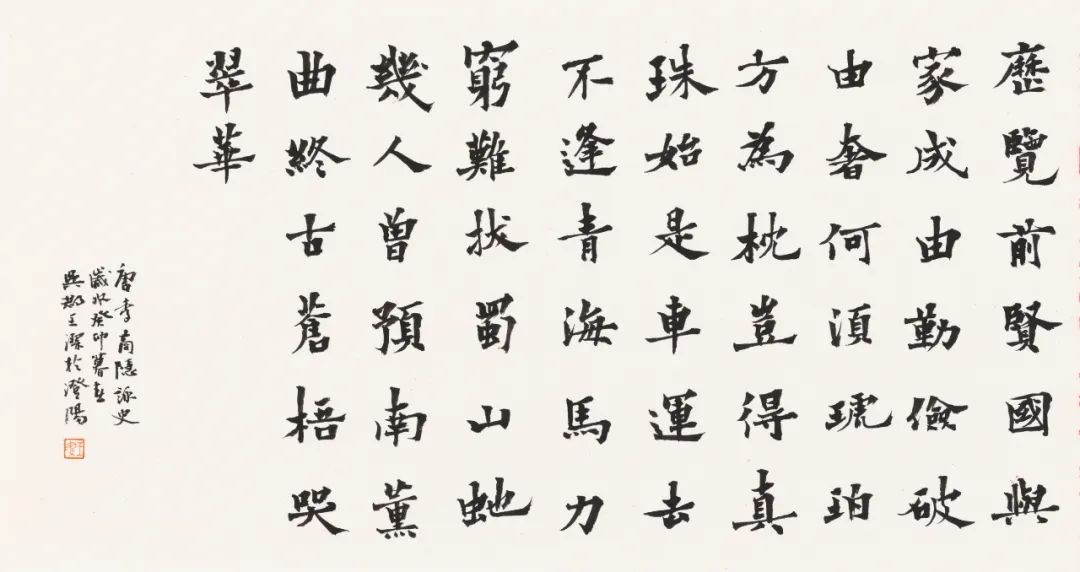 歷覽前賢國與
家成由勤儉破
由奢何須琥珀
方為枕豈得真
珠始是車運去
不逢青海馬力
窮難拔蜀山虵
幾人曾預南薰
曲終古蒼梧哭
翠華
唐李商隱詠史
歲次癸卯暮春
吳郡王潔於澄陽